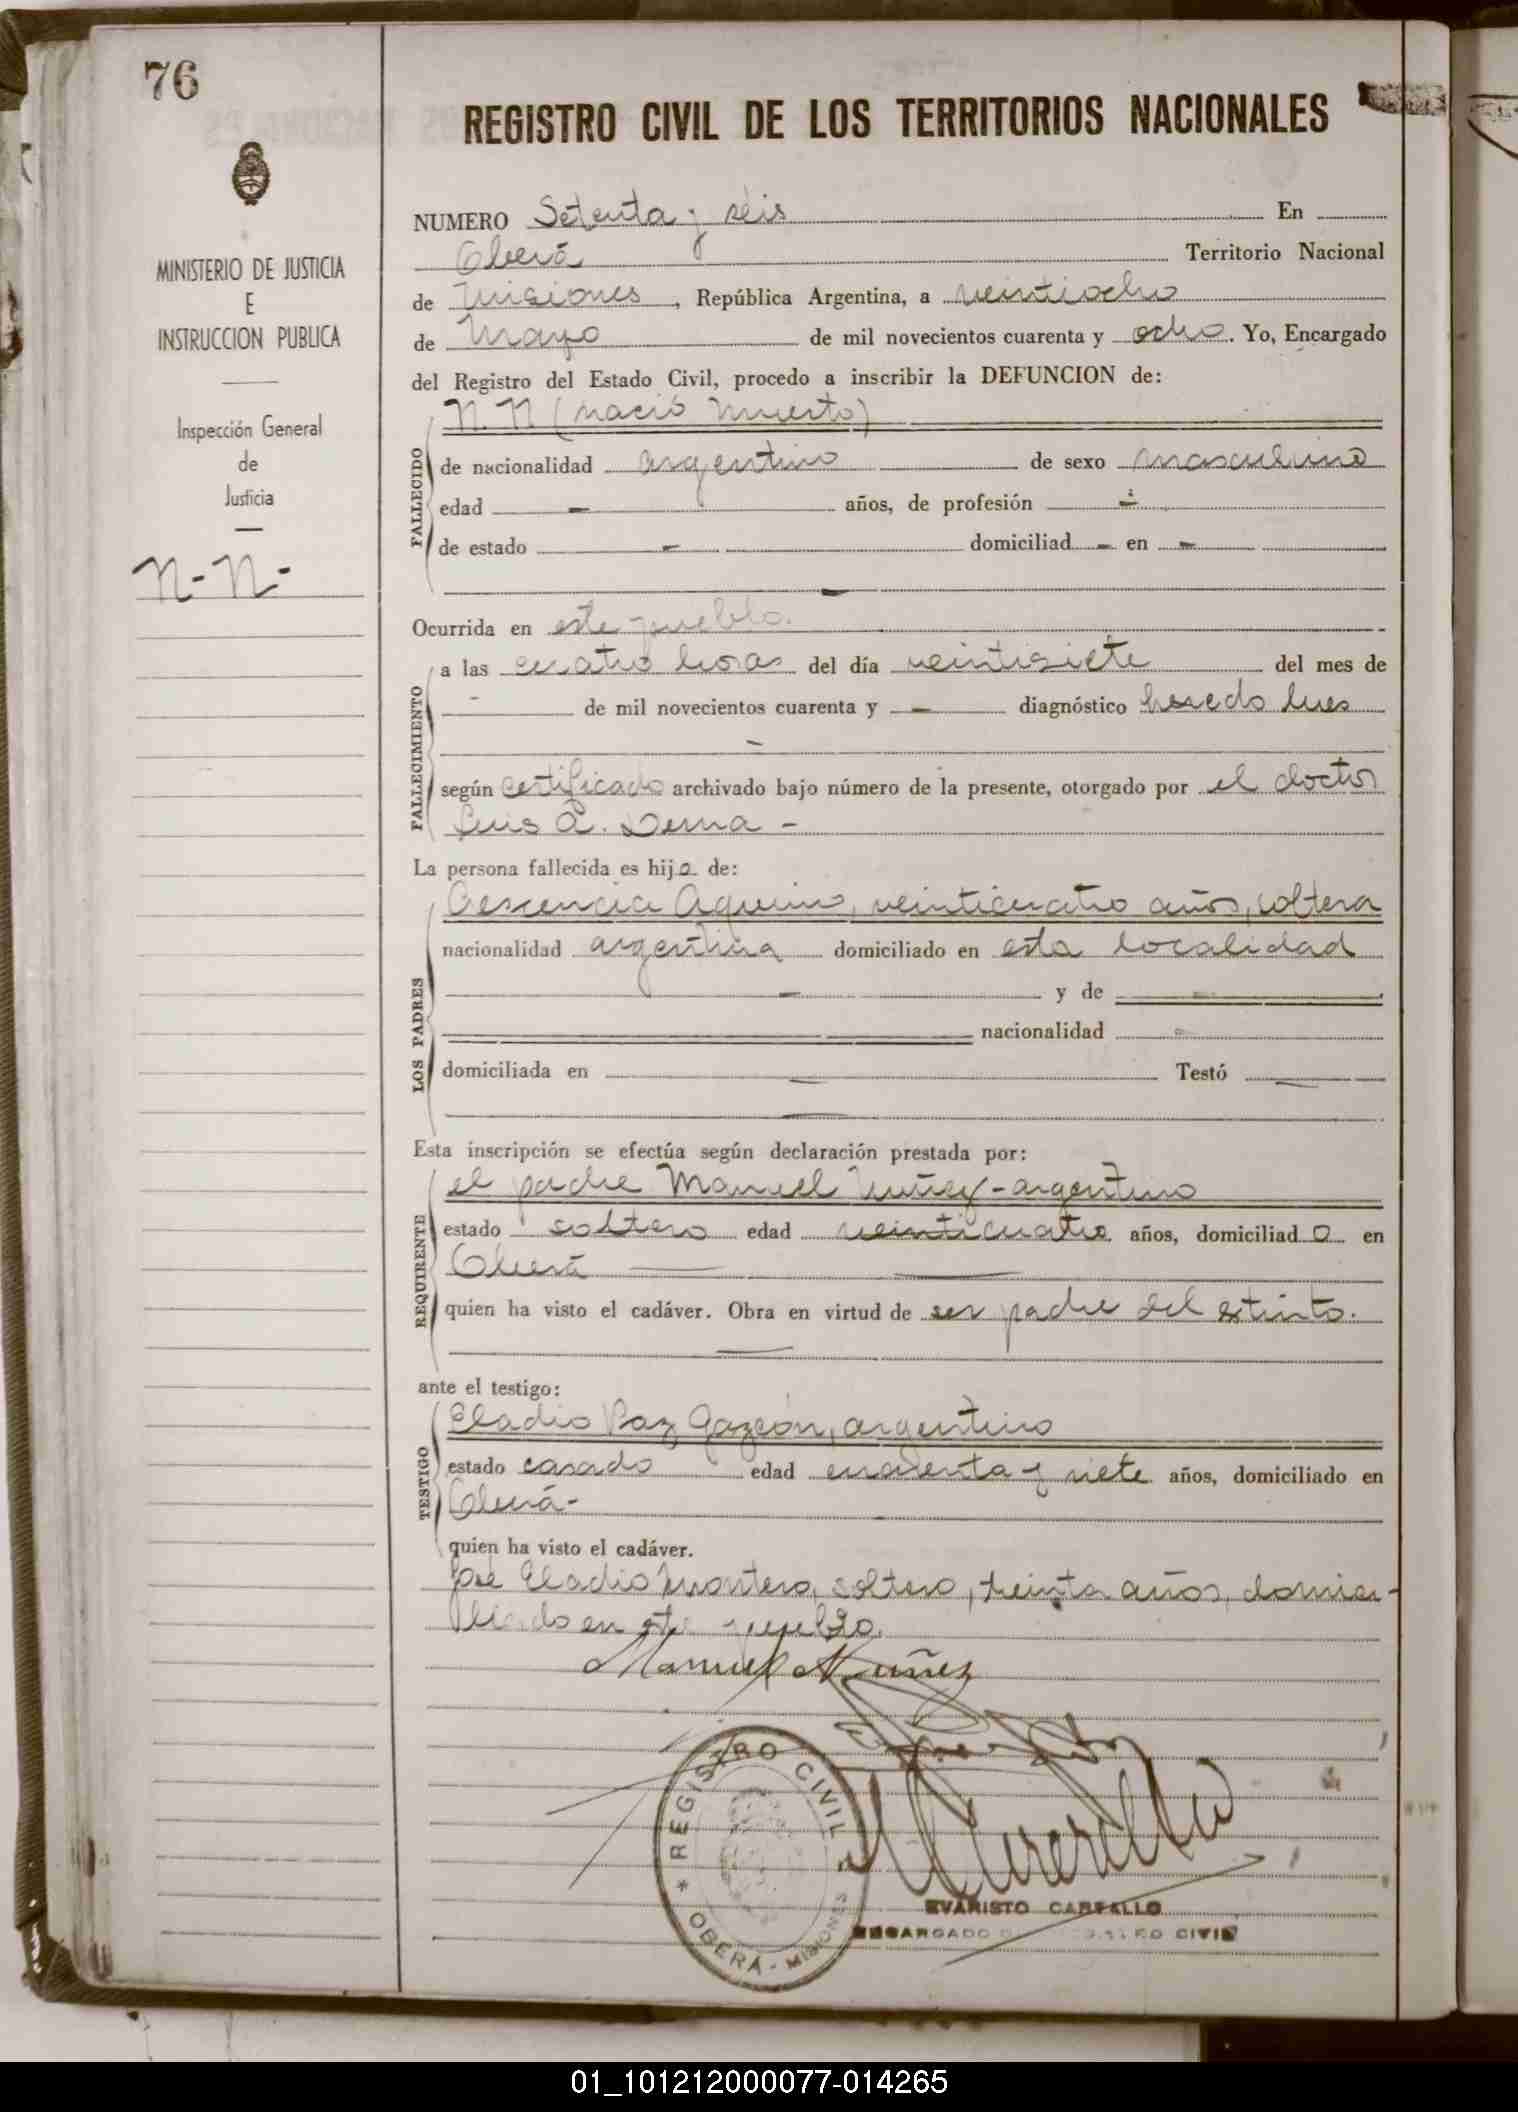 76
REGISTRO CIVIL DE LOS TERRITORIOS NACIONALES
MINISTERIO DE JUSTICIA
E
INSTRUCCION PUBLICA
Inspección General
de
Justicia
N-N-
NUMERO Setenta y séis En
Oberá Territorio Nacional
de Misiones, República Argentina, a veintiocho
de Mayo de mil novecientos cuarenta y ocho. Yo, Encargado
del Registro del Estado Civil, procedo a inscribir la DEFUNCION de:
N. N (nació muerto)
FALLECIDO
de nacionalidad argentino de sexo masculino
edad - años, de profesión -
de estado - domiciliad - en -
-
Ocurrida en este pueblo.
FALLECIMIENTO
a las cuatro horas del día veintisiete del mes de
- de mil novecientos cuarenta y - diagnóstico heredo lues
-
según certificado archivado bajo número de la presente, otorgado por el doctor
Luis A. Derna -
La persona fallecida es hijo de:
LOS PADRES
Crescencia Aquino, veinticuatro años, soltera
nacionalidad argentina domiciliado en esta localidad
- y de -
nacionalidad
domiciliada en - Testó -
-
Esta inscripción se efectúa según declaración prestada por:
REQUIRENTE
el padre Manuel Nuñez - argentino
estado soltero edad veinticuatro años, domiciliado en
Oberá
quien ha visto el cadáver. Obra en virtud de ser padre del extinto.
ante el testigo:
TESTIGO
Eladio Paz Garzón, argentino
estado casado edad cuarenta y siete años, domiciliado en
Oberá-
quien ha visto el cadáver.
José Eladio Montero, soltero, treinta años, domici-
liado en este pueblo.
Manuel Nuñez
REGISTRO CIVIL
* OBERÁ - MISIONES
EVARISTO CARBALLO
ENCARGADO REGISTRO CIVIL
01_101212000077-014265